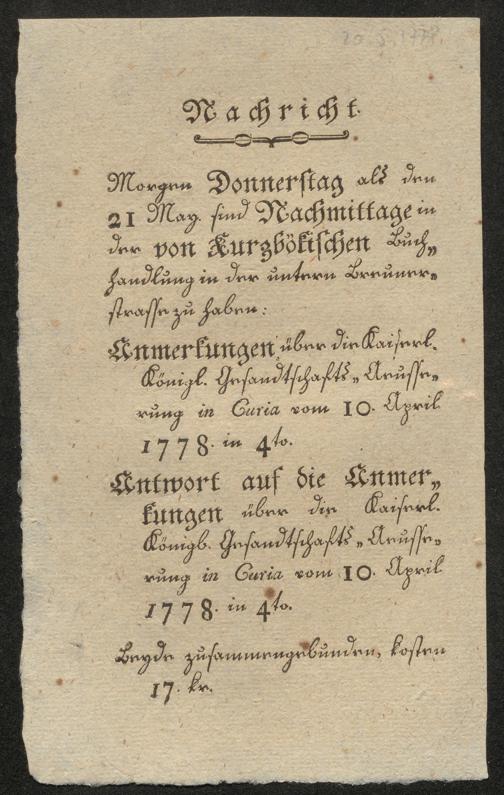 20. 5. 1778.
Nachricht.
Morgen Donnerstag als den
21 May. sind Nachmittage in
der von Kurzbökischen Buch„
handlung in der untern Breuner„
strasse zu haben:
Anmerkungen über die Kaiserl.
Königl. Gesandtschafts„Aeusse„
rung in Curia vom 10. April
1778. in 4to.
Antwort auf die Anmer„
kungen über die Kaiserl.
Königl. Gesandtschafts„Aeusse„
rung in Curia vom 10. April
1778. in 4to.
Beyde zusammengebunden, kosten
17. kr.